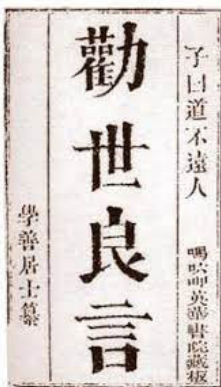 子曰道不遠人
嗎㕭呷英華書院藏板
勸世良言
學善居士纂